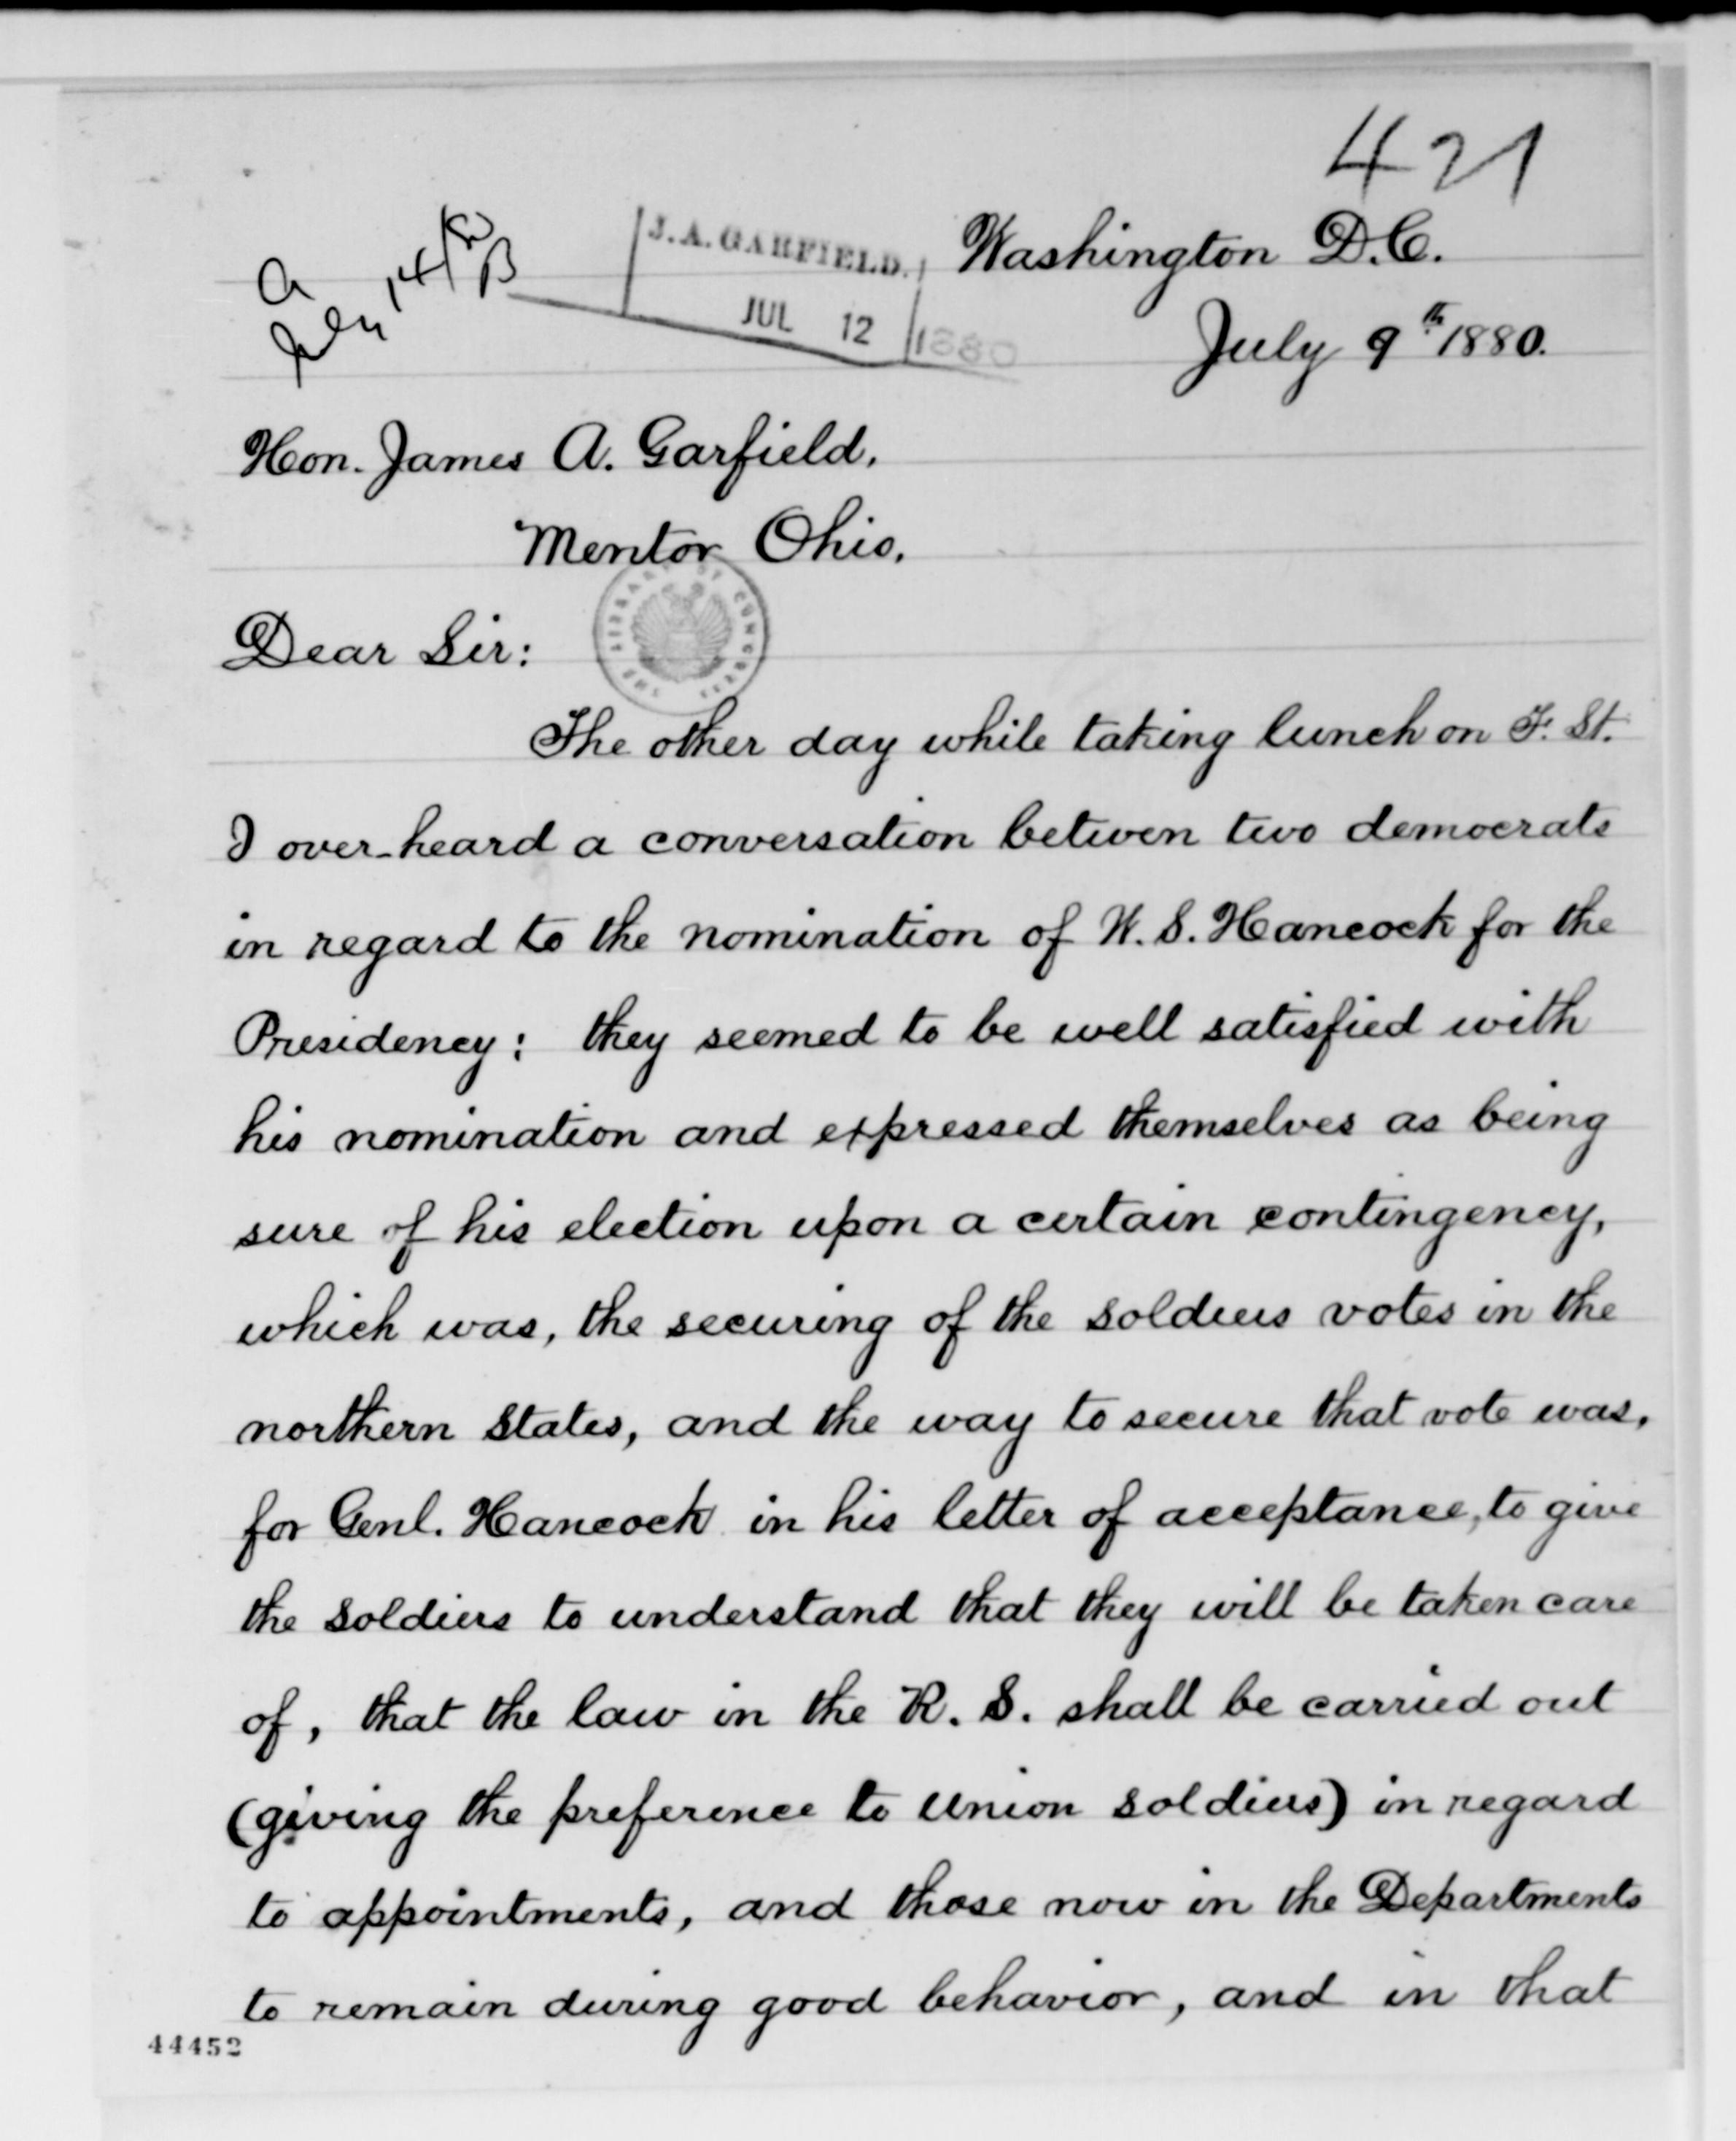 421
a
July 14/80
B
J.A. GARFIELD.
JUL 12 1880
Washington D.C.
July 9th 1880.
Hon. James A. Garfield,
Mentor Ohio.
Dear Sir:
The other day while taking lunch on F. St.
I over-heard a conversation between two democrats
in regard to the nomination of W. S. Hancock for the
Presidency; they seemed to be well satisfied with
his nomination and expressed themselves as being
sure of his election upon a certain contingency,
which was, the securing of the soldiers votes in the
northern States, and the way to secure that vote was,
for Genl. Hancock in his letter of acceptance, to give
the soldiers to understand that they will be taken care
of, that the law in the R. S. shall be carried out
(giving the preference to Union soldiers) in regard
to appointments, and those now in the Departments
to remain during good behavior, and in that
44452